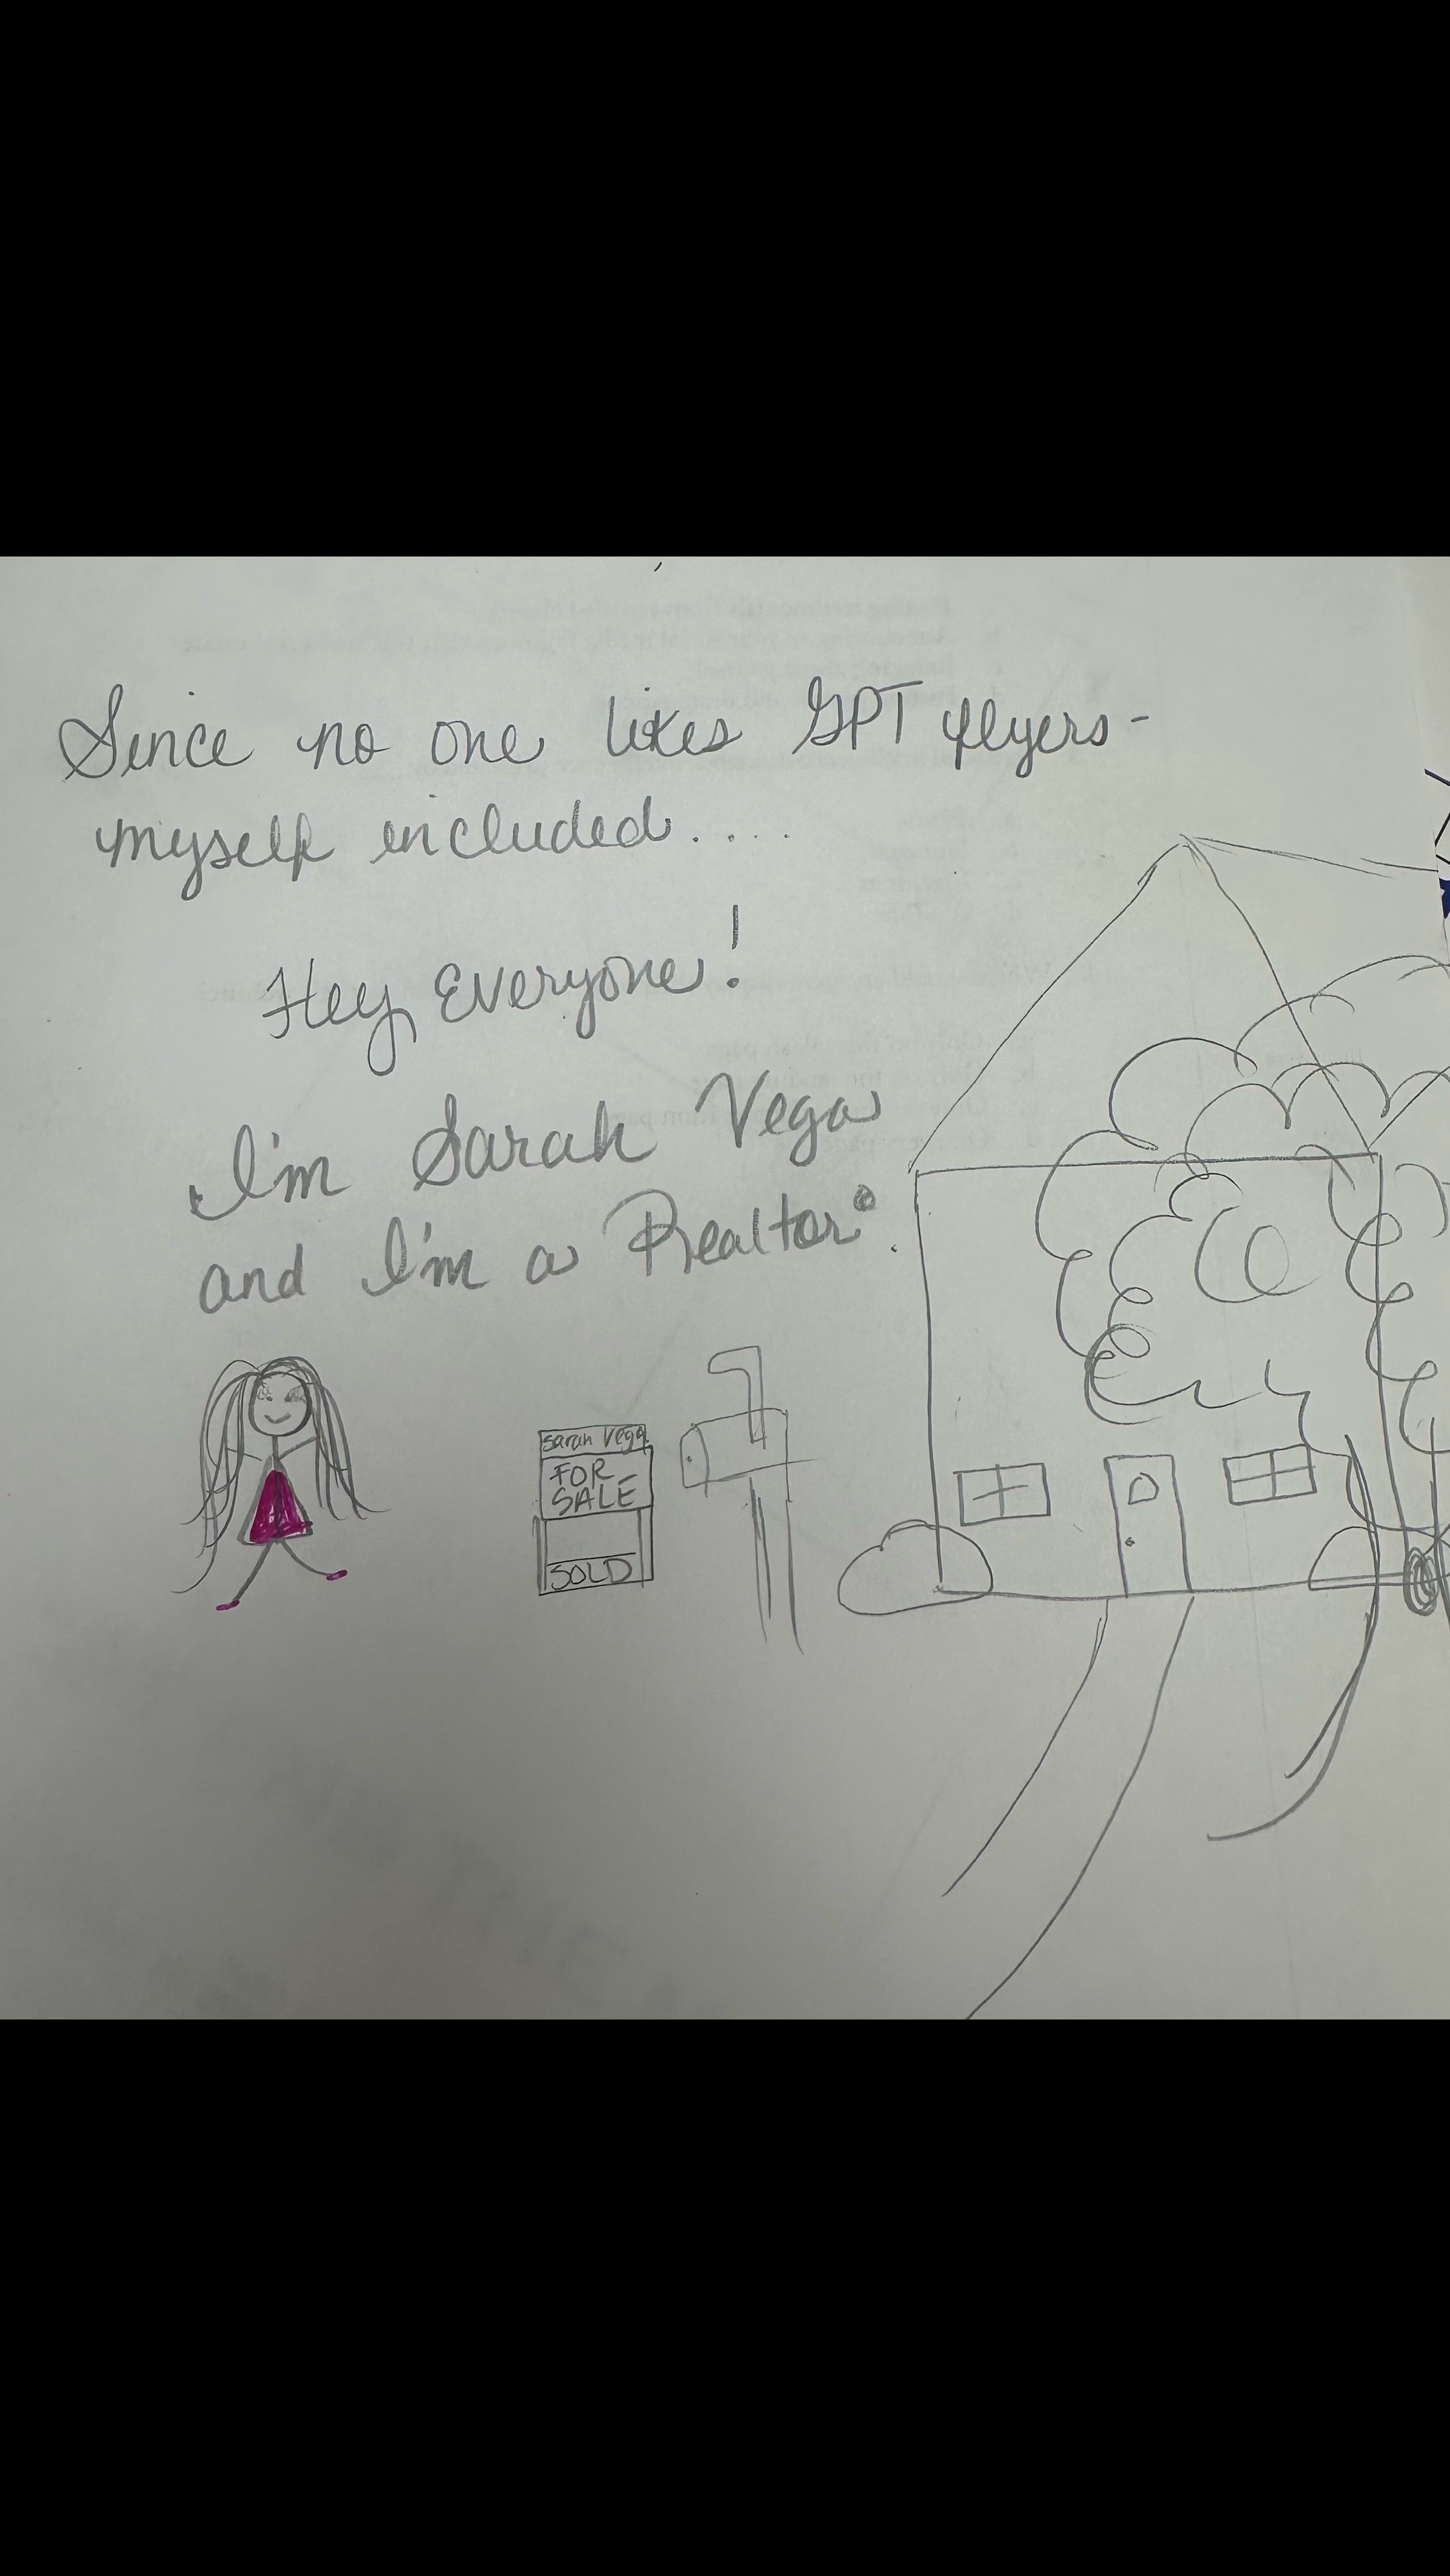 Since no one likes GPT flyers -
myself included....
Hey Everyone!
I'm Sarah Vega
and I'm a Realtor®.
Sarah Vega
FOR
SALE
SOLD